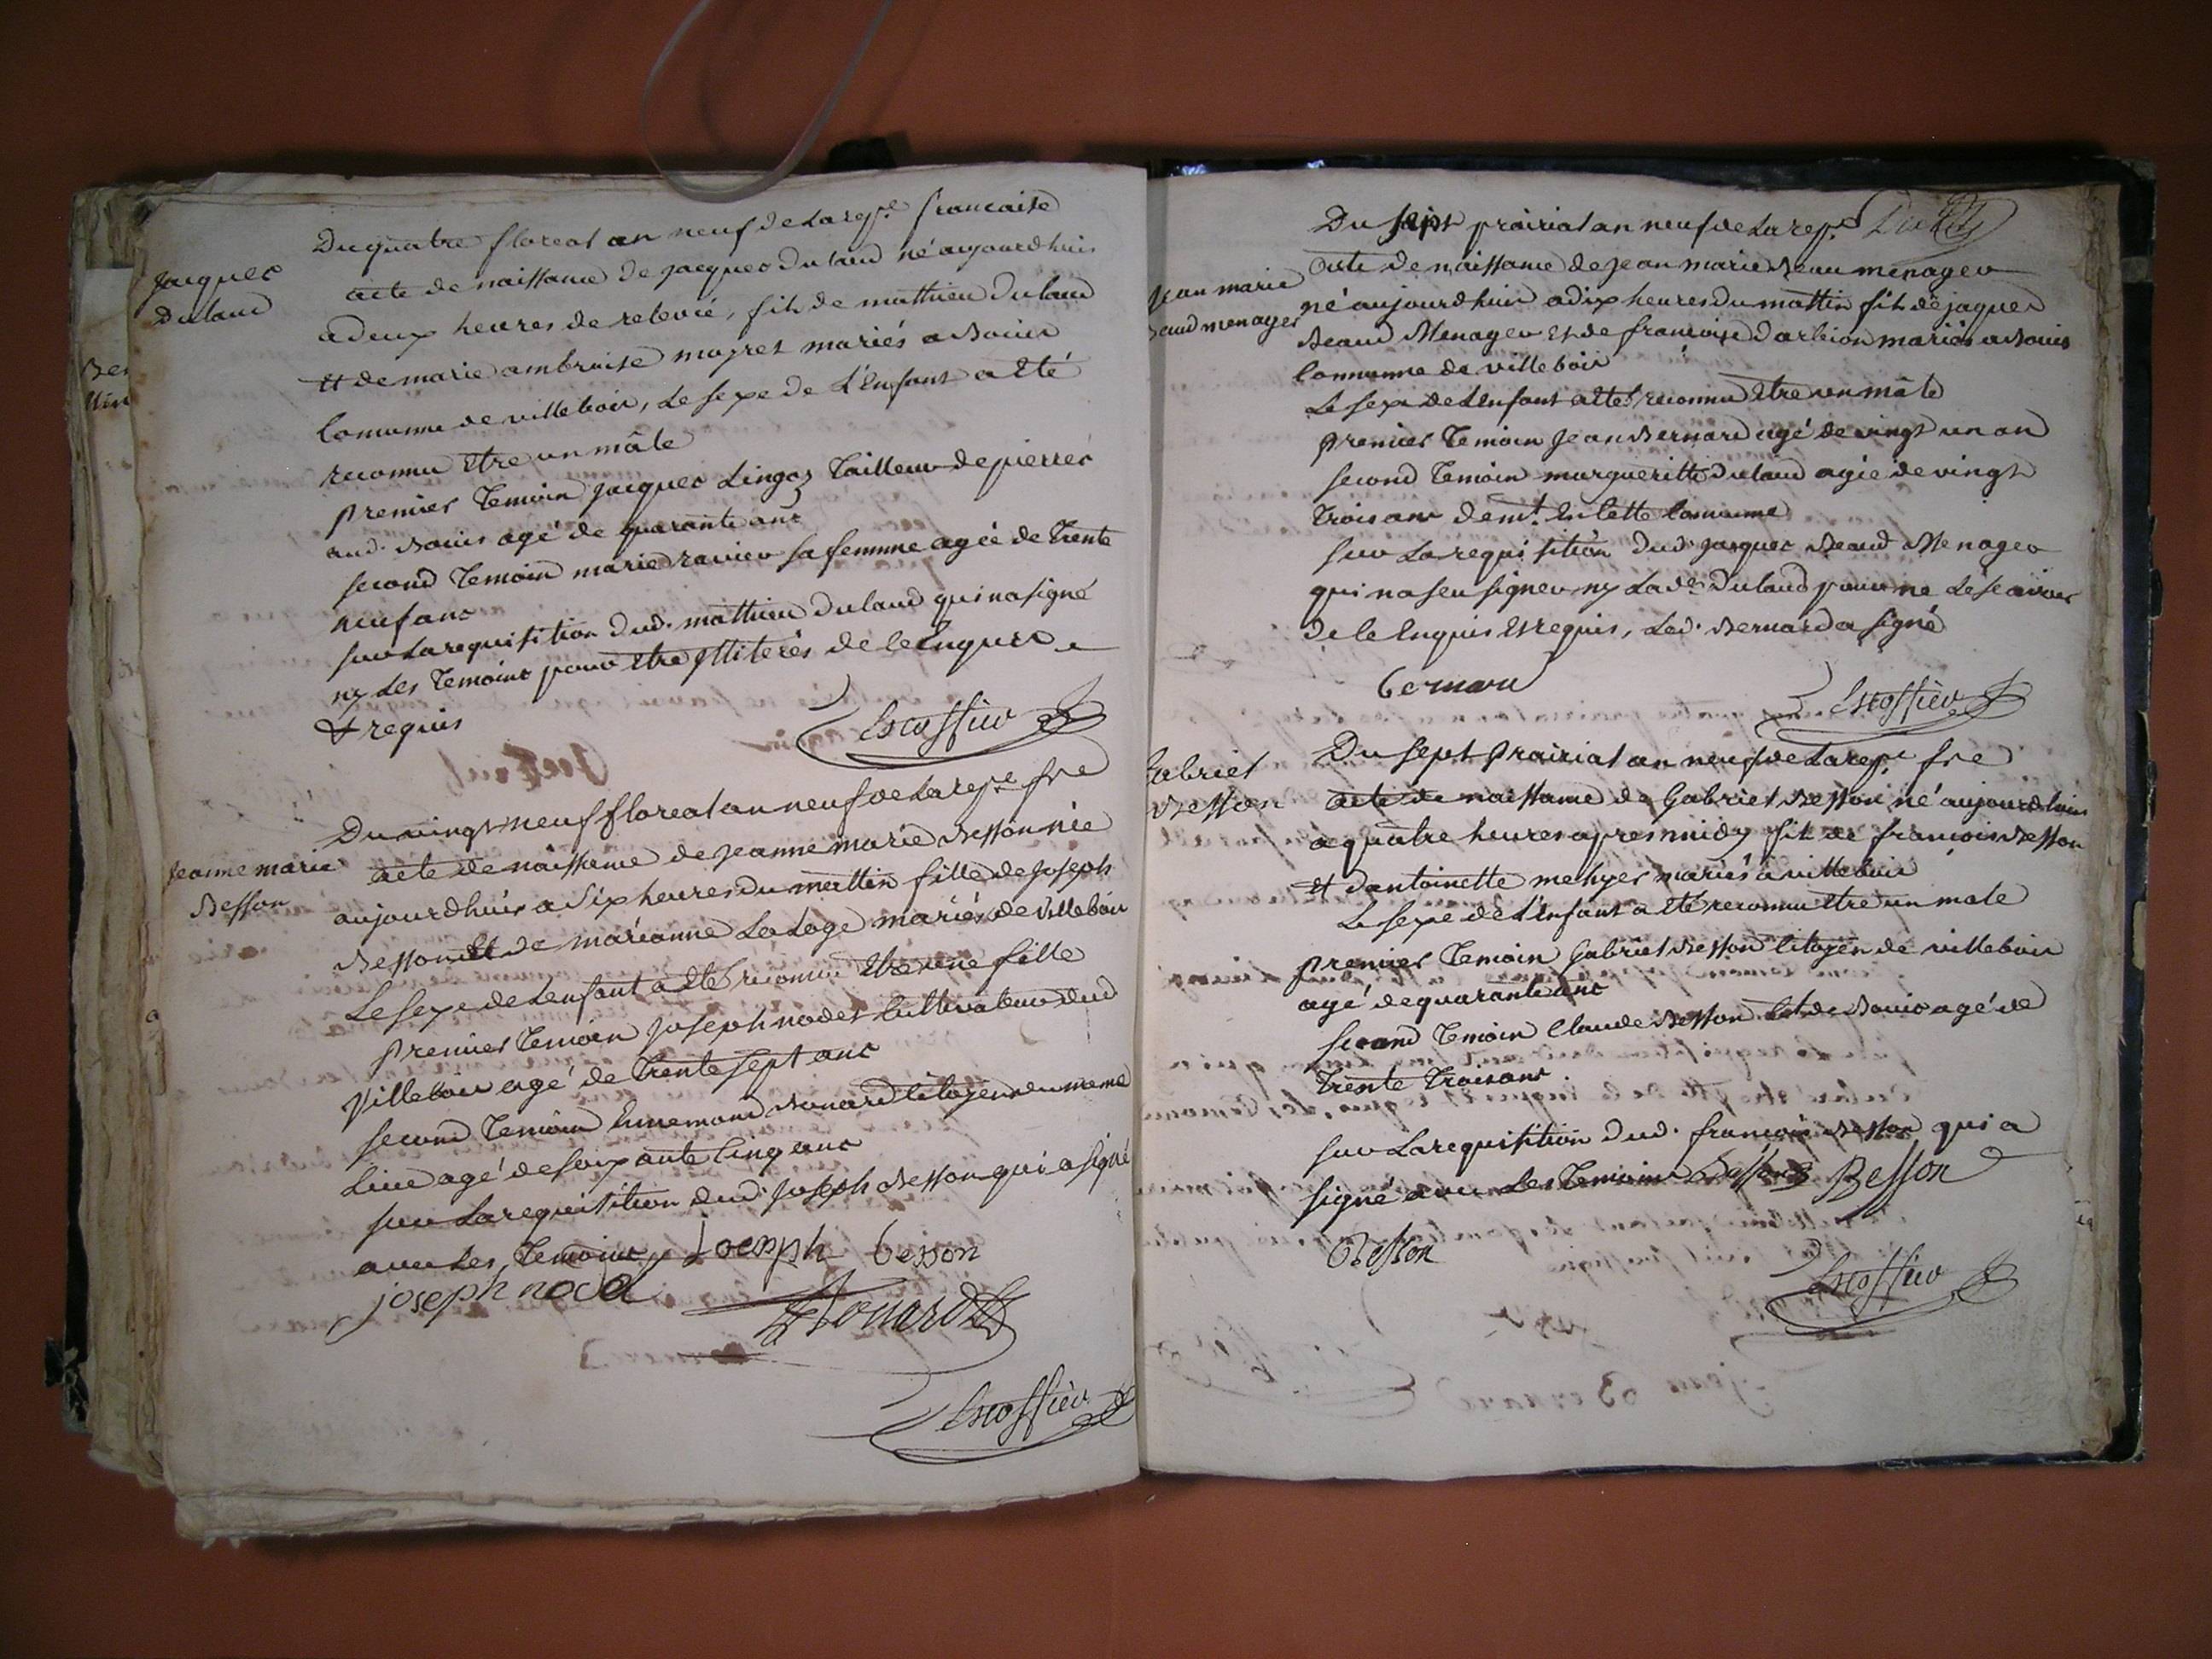 Jacques
Dulaud
Du quatre floreal an neuf de la repe. francaise
acte de naissance de jacques dulaud né aujourdhuis
a deux heures de relevée, fils de matthieu Dulaud
Et de marie ambroise mayret mariés a Bouis
Commune de villebois, Le sexe de L'Enfant a Eté
reconnu Etre un mâle
premier Temoin jacques Lingoz Tailleur de pierres
aud. Bouis agé de quarante ans
second Temoin marie ravier sa femme agée de Trente
neuf ans
sur La requisition dud. matthieu dulaud qui na signé
ny Les Temoins pour Etre jlliterés de ce Enquis
& requis
Escoffier
Jeanne marie
Besson
Du vingt neuf floreal an neuf de La repe. fse
acte de naissance de jeanne marie Besson née
aujourdhuis a six heures du mattin fille de joseph
Besson et de marianne La Loge mariés de villebois
Le sexe de Lenfant a Eté reconnu Etre une fille
premier Temoin joseph nodet Cultivateur dud
villebois agé de Trente sept ans
second Temoin Ennemond Bonard Citoyen du meme
Lieu agé de soixante Cinq ans
sur La requisition dud. joseph Besson qui a signé
avec Les Temoins Joseph besson
joseph nodet
Bonard
Escoffier
Du sept prairial an neuf de la repe.
jean marie
Beaud menager
Acte de naissance de jean marie Beau menager
né aujourdhuis a dix heures du mattin fils de jaques
Beaud Menager Et de francoise darbion mariés a Bouis
Commune de villebois
Le sexe de Lenfant a Eté reconnu Etre un mâle
premier Temoin jean Bernard agé de vingt un an
second Temoin margueritte dulaud agée de vingt
Trois ans demt. En Cette Commune
sur La requisition dud. jacques Beaud Menager
qui na seu signer ny Lade. Dulaud pour ne Le scavoir
de ce Enquis Et requis, Led. Bernard a signé
bernard
Escoffier
Gabriel
Besson
Du sept prairial an neuf de La repe. fse
acte de naissance de Gabriel Besson né aujourdhuis
a quatre heures apres midy fils de francois Besson
Et dantoinette menger mariés a villebois
Le sexe de L'Enfant a Eté reconnu Etre un male
premier Temoin Gabriel Besson Citoyen de villebois
agé de quarante ans
second Temoin Claude Besson Cit. de Bouis agé de
Trente Trois ans
sur La requisition dud. francois Besson qui a
signé avec Les Temoins Besson Besson
Besson
Escoffier